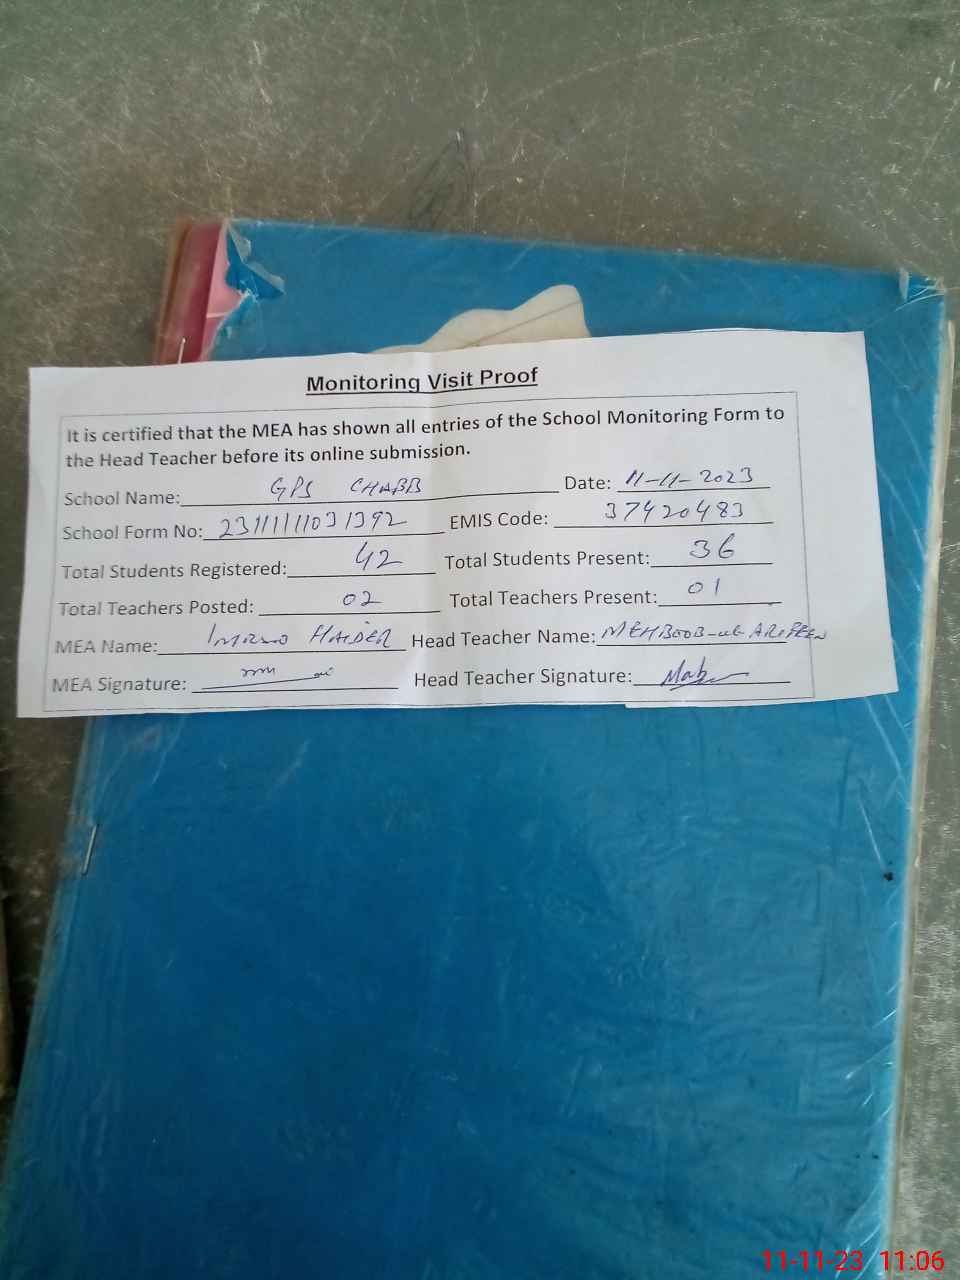 Monitoring Visit Proof
It is certified that the MEA has shown all entries of the School Monitoring Form to
the Head Teacher before its online submission.
School Name: GPS CHABB Date: 11-11-2023
School Form No: EMIS Code: 37420483
Total Students Registered: 42 Total Students Present: 36
Total Teachers Posted: 02 Total Teachers Present: 01
MEA Name: HAIDER Head Teacher Name: MEHBOOB-ul-ARIFEEN
MEA Signature: Head Teacher Signature:
11-11-23 11:06